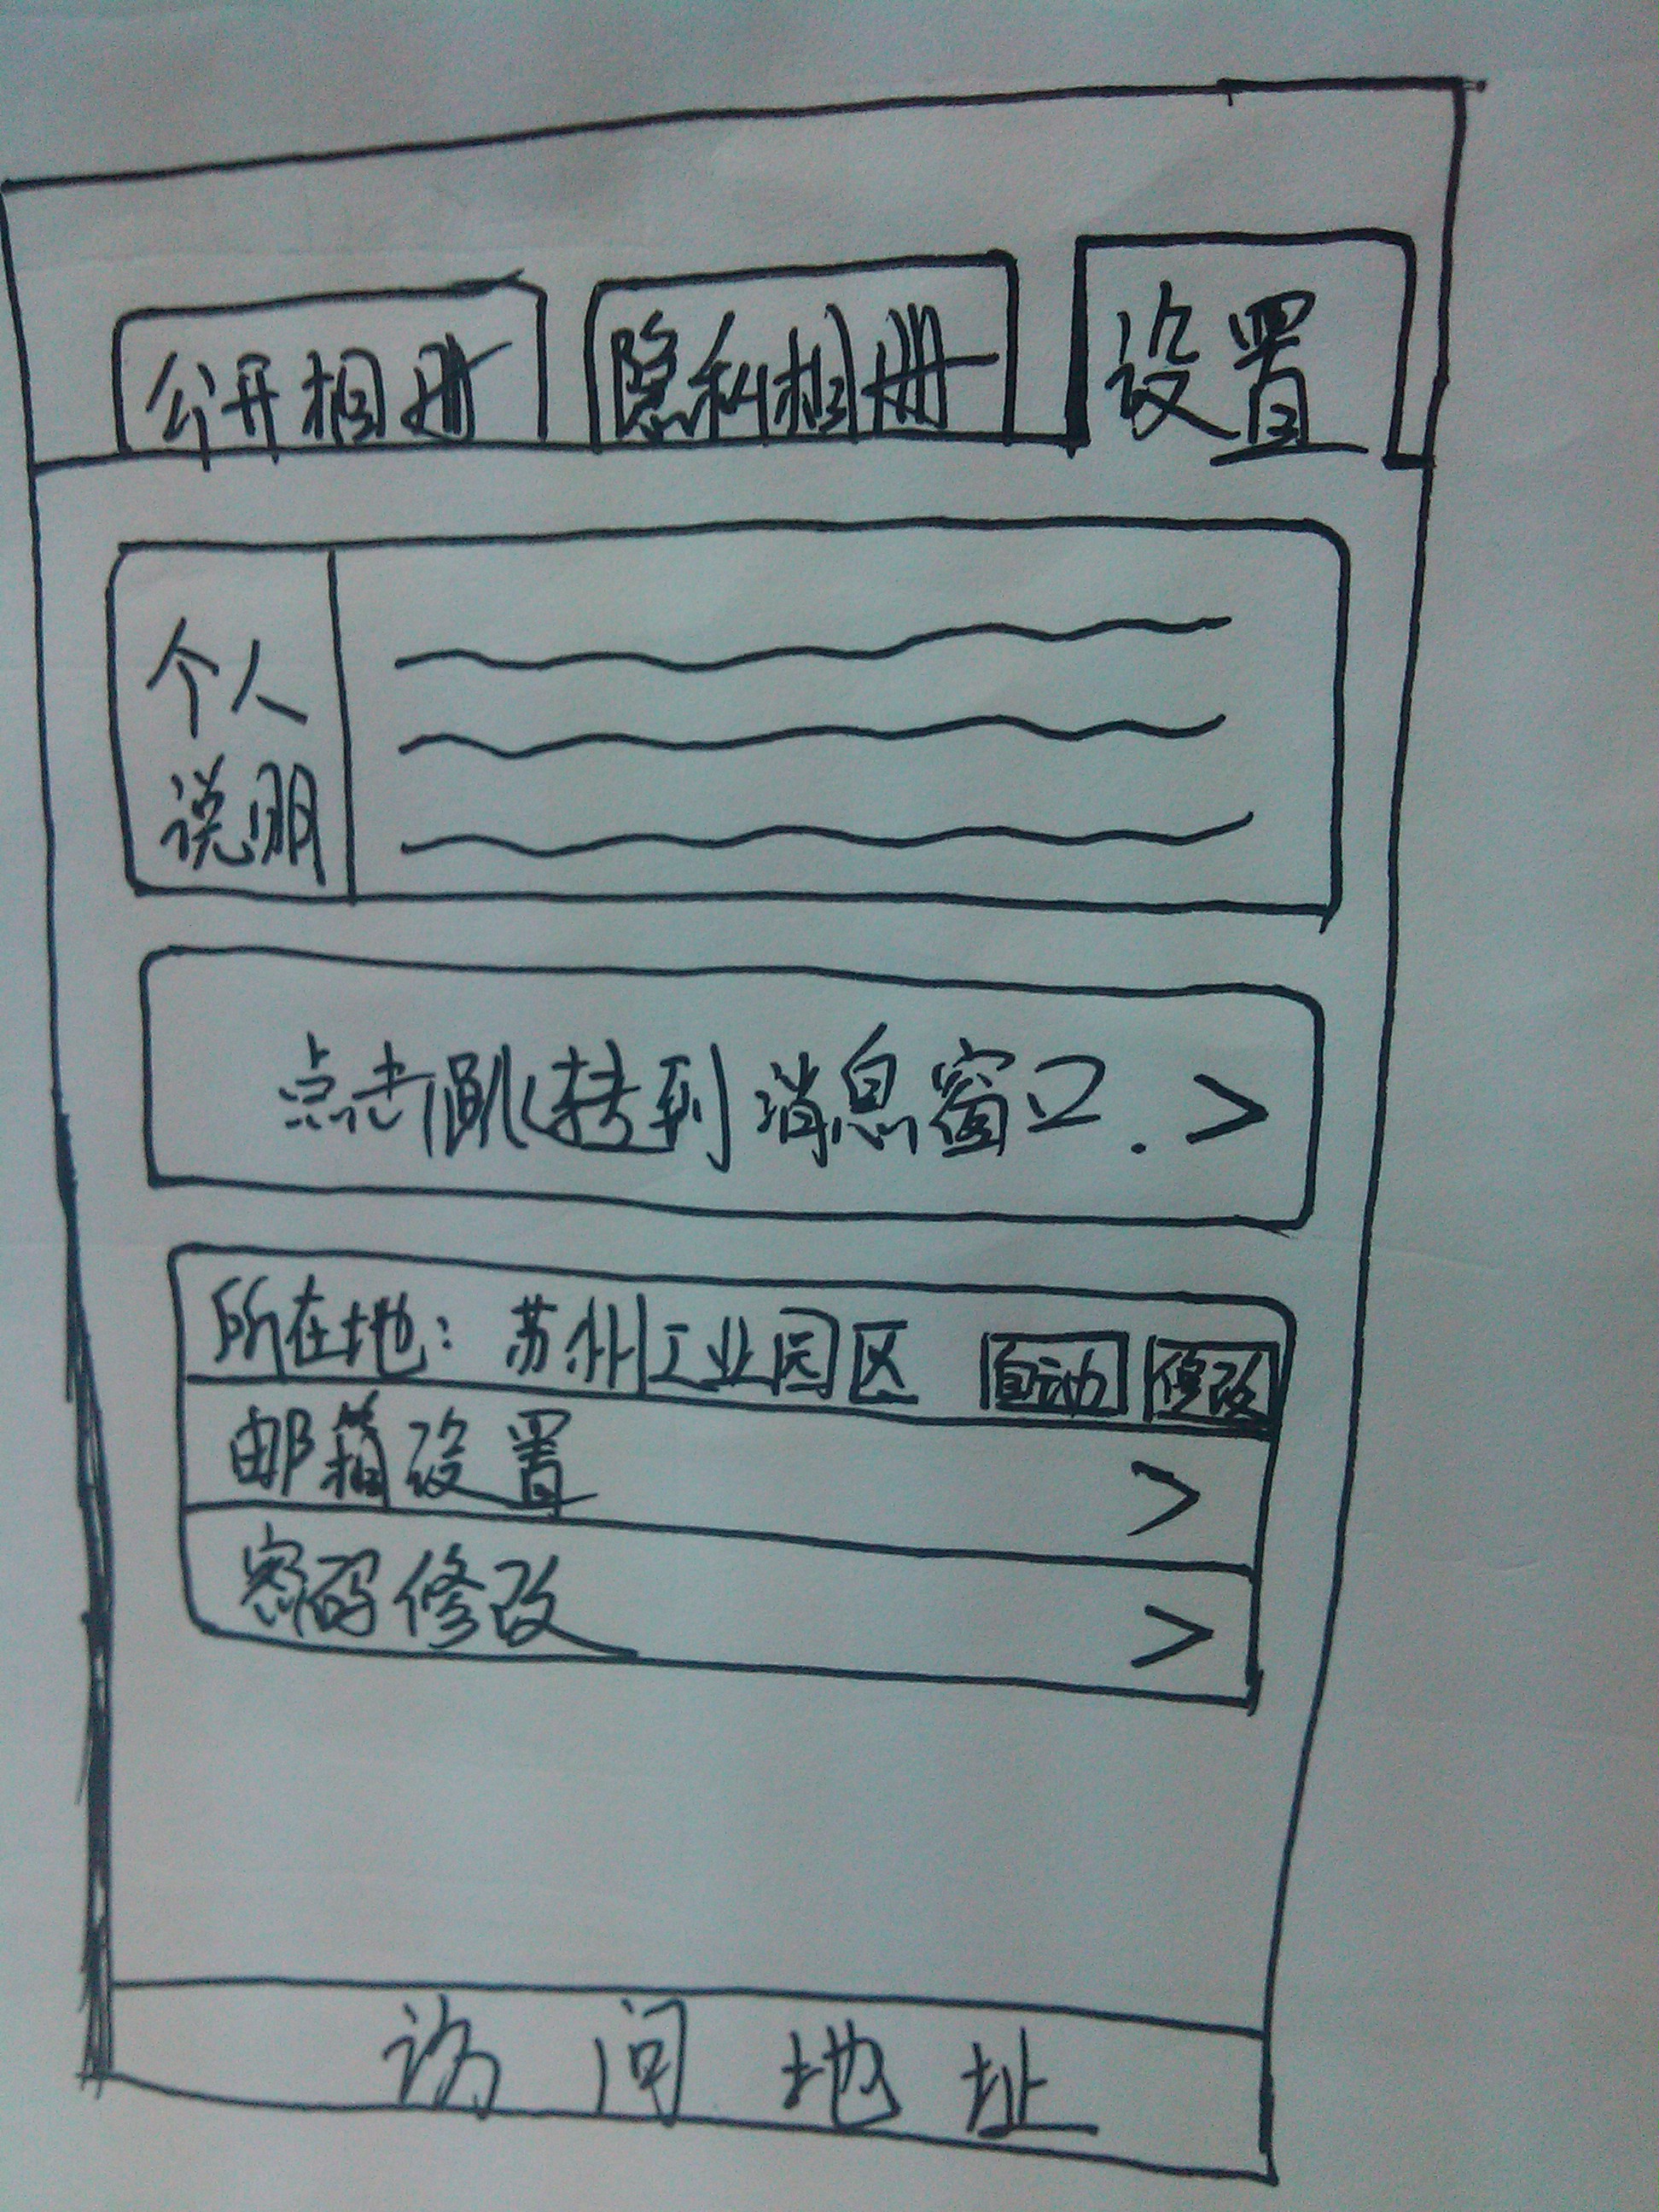 公开相册 隐私相册 设置
个人
说明
点击跳转到消息窗口. >
所在地: 苏州工业园区 自动 修改
邮箱设置 >
密码修改 >
访问地址